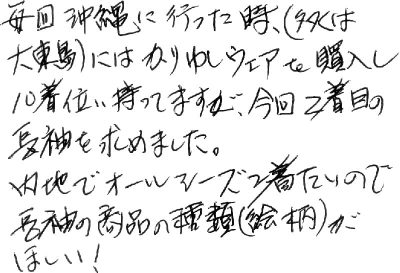 毎回沖縄に行った時、(多くは
大東島)にはかりゆしウェアを購入し
10着位い持ってますが、今回2着目の
長袖を求めました。
内地でオールシーズン着たいので
長袖の商品の種類(絵柄)が
ほしい!